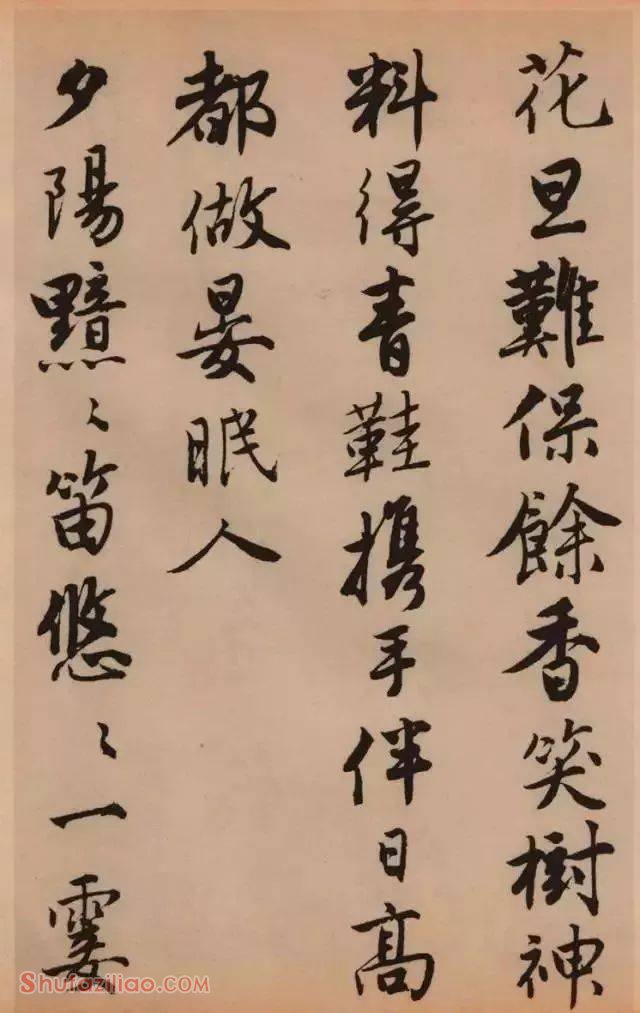 花旦難保餘香笑樹神
料得青鞋攜手伴日高
都做晏眠人
夕陽黯〻笛悠〻一霎
Shufaziliao.com